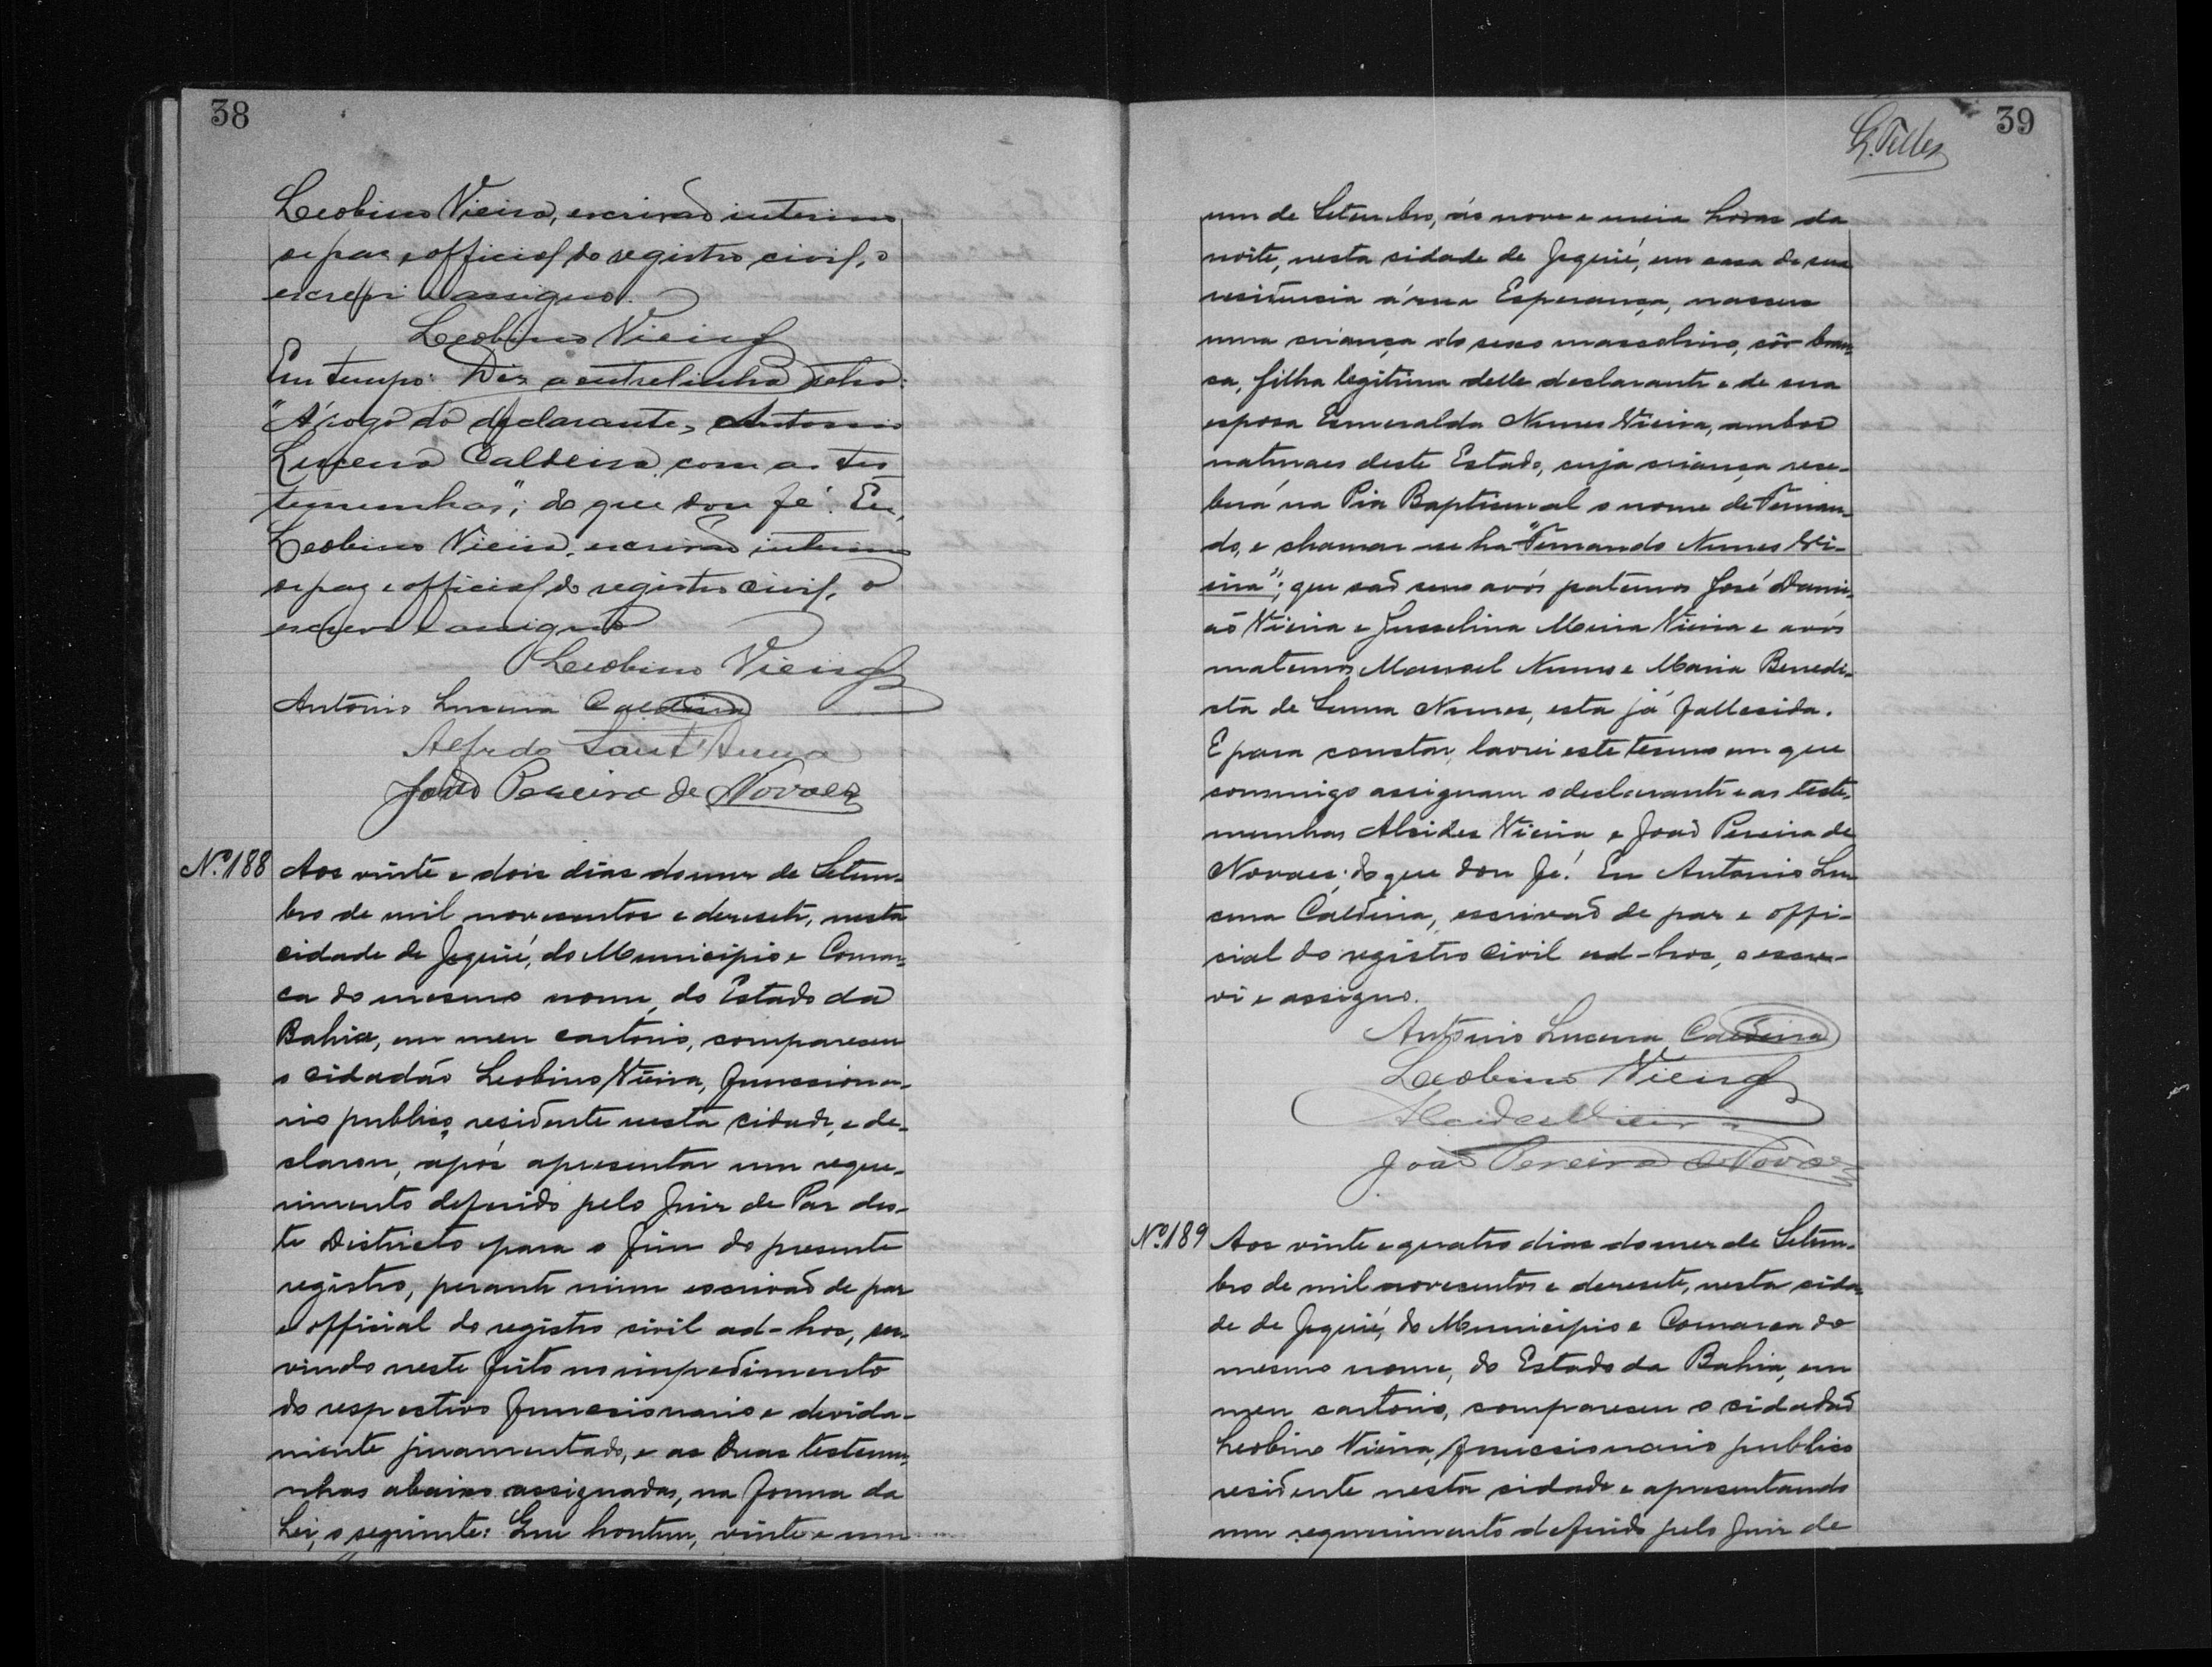 38
Leobino Vieira, escrivaõ interino
de paz e official do registro civil, o
escrevi e assigno.
Leobino Vieira
Em tempo: Diz a entrelinha retro:
"A' rogo do declarante, Antonio
Lucena Caldeira com as tes
temunhas"; do que dou fé. Eu,
Leobino Vieira, escrivaõ interino
de paz e official do registro civil, o
escrevi e assigno
Leobino Vieira
Antonio Lucena Caldeira
Alfredo Sant'Anna
João Pereira de Novaes
Nº 188 Aos vinte e dois dias do mez de Setem-
bro de mil novecentos e dezesete, nesta
cidade de Jequié, do Municipio e Comar-
ca do mesmo nome, do Estado da
Bahia, em meu cartorio, compareceu
o cidadão Leobino Vieira, funcciona-
rio publico, residente nesta cidade, e de-
clarou, após apresentar um reque-
rimento deferido pelo Juiz de Paz des-
te Districto para o fim do presente
registro, perante mim escrivaõ de paz
e official do registro civil ad-hoc, ser-
vindo neste feito no impedimento
do respectivo funccionario e devida-
mente juramentado, e as duas testemu-
nhas abaixo assignadas, na forma da
Lei, o seguinte: Que hontem, vinte e um
39
G. Telles
um de Setembro, ás nove e meia horas da
noite, nesta cidade de Jequié, em casa de sua
residencia á rua Esperança, nasceu
uma criança do sexo masculino, côr bran-
ca, filha legitima delle declarante e de sua
esposa Esmeralda Nunes Vieira, ambos
naturaes deste Estado, cuja criança rece-
berá na Pia Baptismal o nome de Fernan-
do, e chamar-se ha "Fernando Nunes Vi-
eira"; que saõ seus avós paternos José Dami-
aõ Vieira e Jusselina Meira Vieira e avós
maternos Manoel Nunes e Maria Benedi-
cta de Senna Nunes, esta já fallecida.
E para constar, lavrei este termo em que
commigo assignam o declarante e as teste-
munhas Alcides Vieira e Joaõ Pereira de
Novaes; do que dou fé. Eu Antonio Lu-
cena Caldeira, escrivaõ de paz e offi-
cial do registro civil ad-hoc, o escre-
vi e assigno.
Antonio Lucena Caldeira
Leobino Vieira
Alcides Vieira
Joaõ Pereira de Novaes
Nº 189 Aos vinte e quatro dias do mez de Setem-
bro de mil novecentos e dezesete, nesta cida-
de de Jequié, do Municipio e Comarca do
mesmo nome, do Estado da Bahia, em
meu cartorio, compareceu o cidadaõ
Leobino Vieira, funccionario publico
residente nesta cidade e apresentando
um requerimento deferido pelo Juiz de